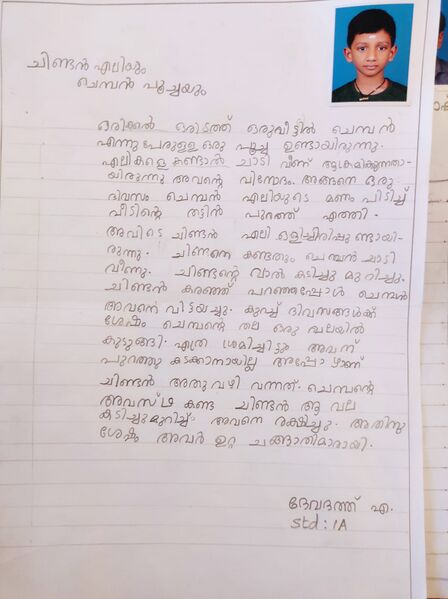 ചിണ്ടൻ എലിയും
ചെമ്പൻ പൂച്ചയും
ഒരിക്കൽ ഒരിടത്ത് ഒരുവീട്ടിൽ ചെമ്പൻ
എന്നു പേരുള്ള ഒരു പൂച്ച ഉണ്ടായിരുന്നു.
എലികളെ കണ്ടാൽ ചാടി വീണ് ആക്രമിക്കുന്നതാ-
യിരുന്നു അവന്റെ വിനോദം. അങ്ങനെ ഒരു
ദിവസം ചെമ്പൻ എലിയുടെ മണം പിടിച്ച്
വീടിന്റെ തട്ടിൻ പുറത്ത് എത്തി.
അവിടെ ചിണ്ടൻ എലി ഒളിച്ചിരിപ്പുണ്ടായി-
രുന്നു. ചിണ്ടനെ കണ്ടതും ചെമ്പൻ ചാടി
വീണു. ചിണ്ടന്റെ വാൽ കടിച്ചു മുറിച്ചു.
ചിണ്ടൻ കരഞ്ഞ് പറഞ്ഞപ്പോൾ ചെമ്പൻ
അവനെ വിട്ടയച്ചു. കുറച്ച് ദിവസങ്ങൾക്ക്
ശേഷം ചെമ്പന്റെ തല ഒരു വലയിൽ
കുടുങ്ങി. എത്ര ശ്രമിച്ചിട്ടും അവന്
പുറത്തു കടക്കാനായില്ല അപ്പോഴാണ്
ചിണ്ടൻ അതുവഴി വന്നത്. ചെമ്പന്റെ
അവസ്ഥ കണ്ട ചിണ്ടൻ ആ വല
കടിച്ചുമുറിച്ച് അവനെ രക്ഷിച്ചു. അതിനു
ശേഷം അവർ ഉറ്റ ചങ്ങാതിമാരായി.
ദേവദത്ത് എ.
std: 1A